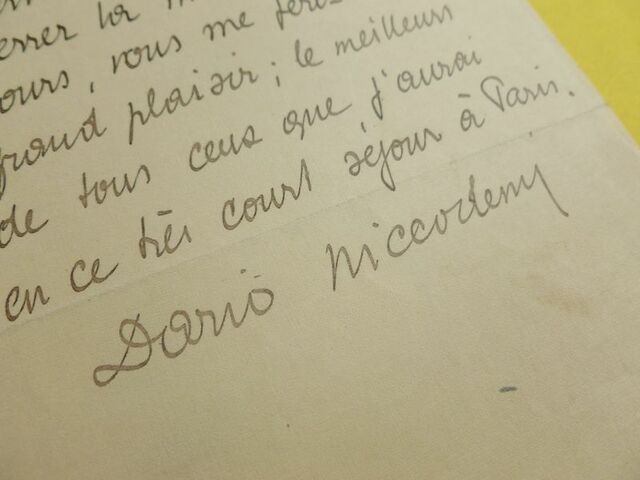 serrer la m
ours, vous me feri
grand plaisir; le meilleur
de tous ceux que j'aurai
en ce très court séjour à Paris.
Dario Niccodemi